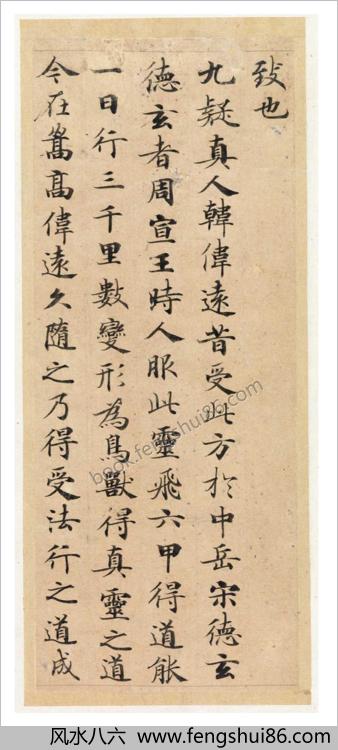 致也
九疑真人韓偉遠昔受此方於中岳宋德玄
德玄者周宣王時人服此靈飛六甲得道能
一日行三千里數變形為鳥獸得真靈之道
今在嵩高偉遠久隨之乃得受法行之道成
book.fengshui86.com
风水八六 www.fengshui86.com